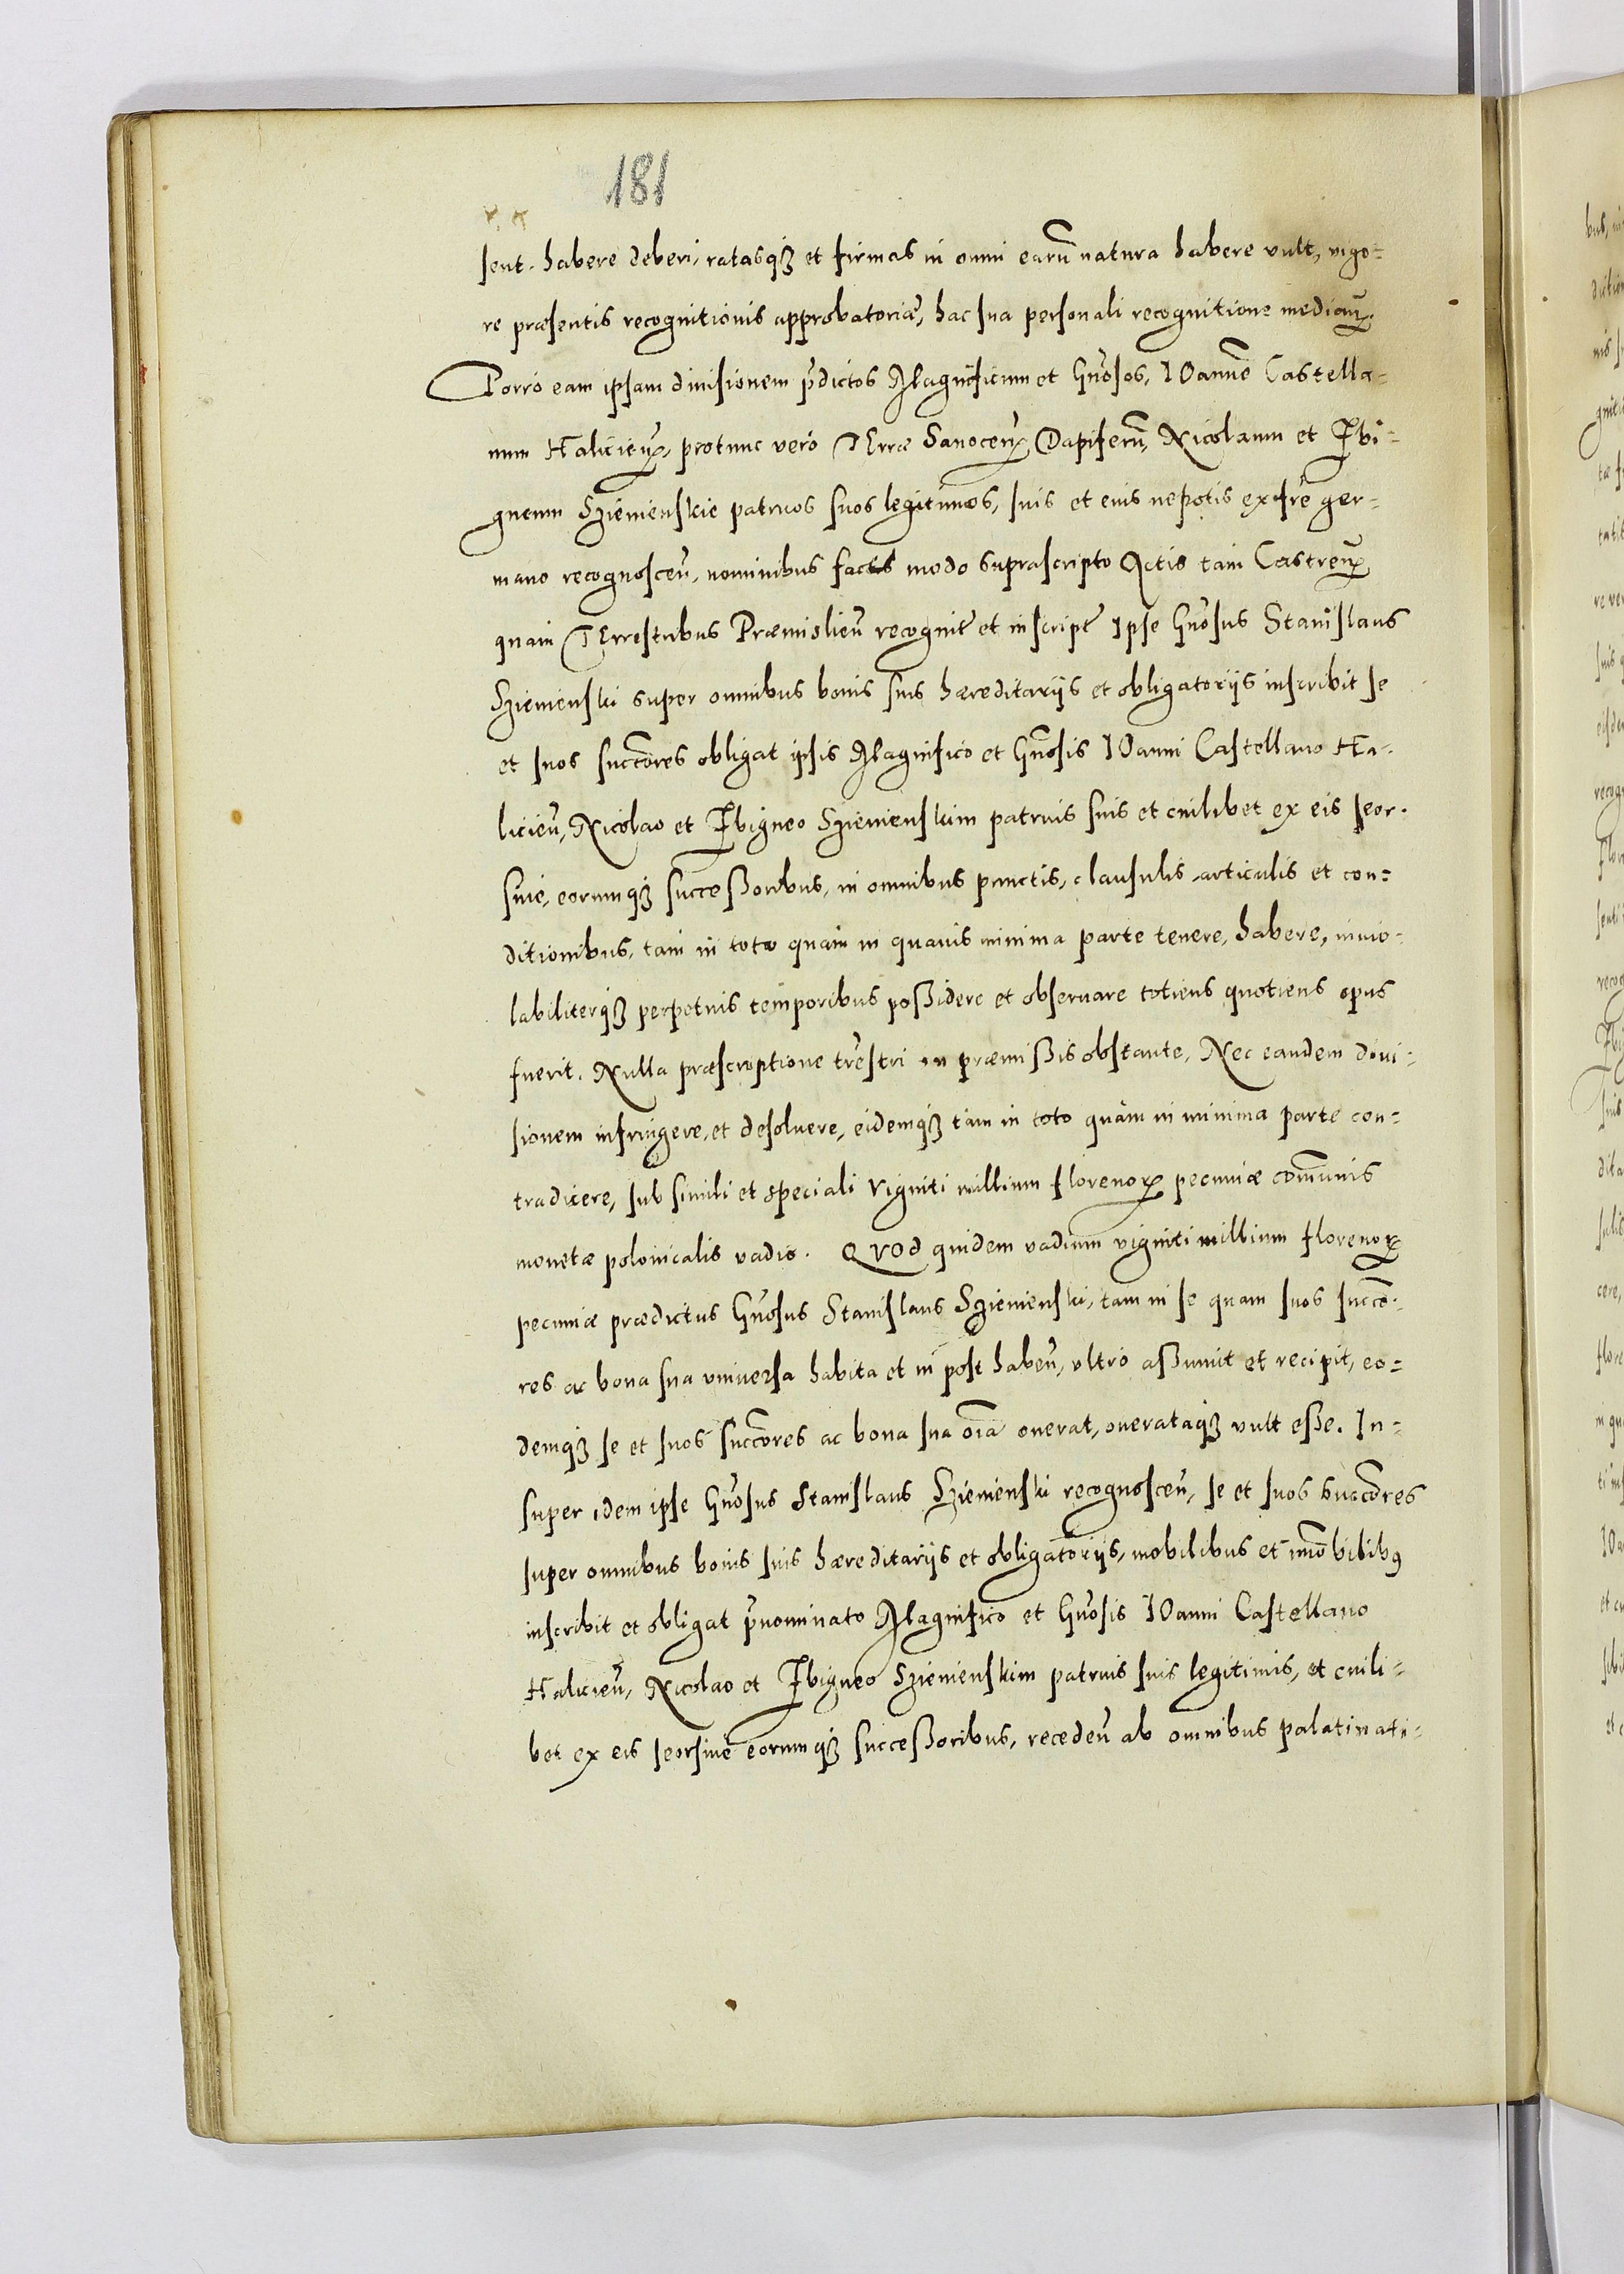 181
sent. habere deberi, ratasq3 et firmas in omni earū natura habere vult, vigo-
re præsentis recognitionis approbatoriæ, hac sua personali recognitione median̄.
Porro eam ipsam diuisionem p̄dictos Magnificum et Gn̄osos, IOannē Castella-
num Halicien̄, protunc vero TErræ Sanocen̄ Dapiferū, Nicolaum et Zbi-
gneum Szienienskie patruos suos legitimos, suis et eius nepotis ex frē ger-
mano recognoscen̄, nominibus factis modo suprascripto Actis tam Castren̄
quam TErrestribus Præmislien̄ recognit̄ et inscript̄ Ipse Gn̄osus Stanislaus
Szienienski super omnibus bonis suis hæreditarijs et obligatorijs inscribit se
et suos succ̄ores obligat ipsis Magnifico et Gn̄osis IOanni Castellano Ha-
licien̄, Nicolao et Zbigneo Szienienskim patruis suis et cuilibet ex eis seor-
siue, eorumq3 successoribus, in omnibus punctis, clausulis articulis et con-
ditionibus, tam in toto quam in quauis minima parte tenere, habere, inuio-
labiliterq3 perpetuis temporibus possidere et obseruare totiens quotiens opus
fuerit. Nulla præscriptione tr̄estri in præmissis obstante, Nec eandem diui-
sionem infringere, et desoluere, eidemq3 tam in toto quàm in minima parte con-
tradicere, sub simili et speciali viginti millium florenor̄ pecuniæ com̄unis
monetæ polonicalis vadio. QVOd quidem vadium viginti millium florenor̄
pecuniæ prædictus Gn̄osus Stanislaus Szienienski, tam in se quam suos succ̄o-
res ac bona sua vniuersa habita et in post haben̄, vltro assumit et recipit, eo-
demq3 se et suos succ̄ores ac bona sua oīa onerat, onerataq3 vult esse. In-
super idem ipse Gn̄osus Stanislaus Szienienski recognoscen̄, se et suos succ̄ores
super omnibus bonis suis hæreditarijs et obligatorijs, mobilibus et im̄obilib9
inscribit et obligat p̄nominato Magnifico et Gn̄osis IOanni Castellano
Halicien̄, Nicolao et Zbigneo Szienienskim patruis suis legitimis, et cuili-
bet ex eis seorsiue eorumq3 successoribus, receden̄ ab omnibus palatinati-